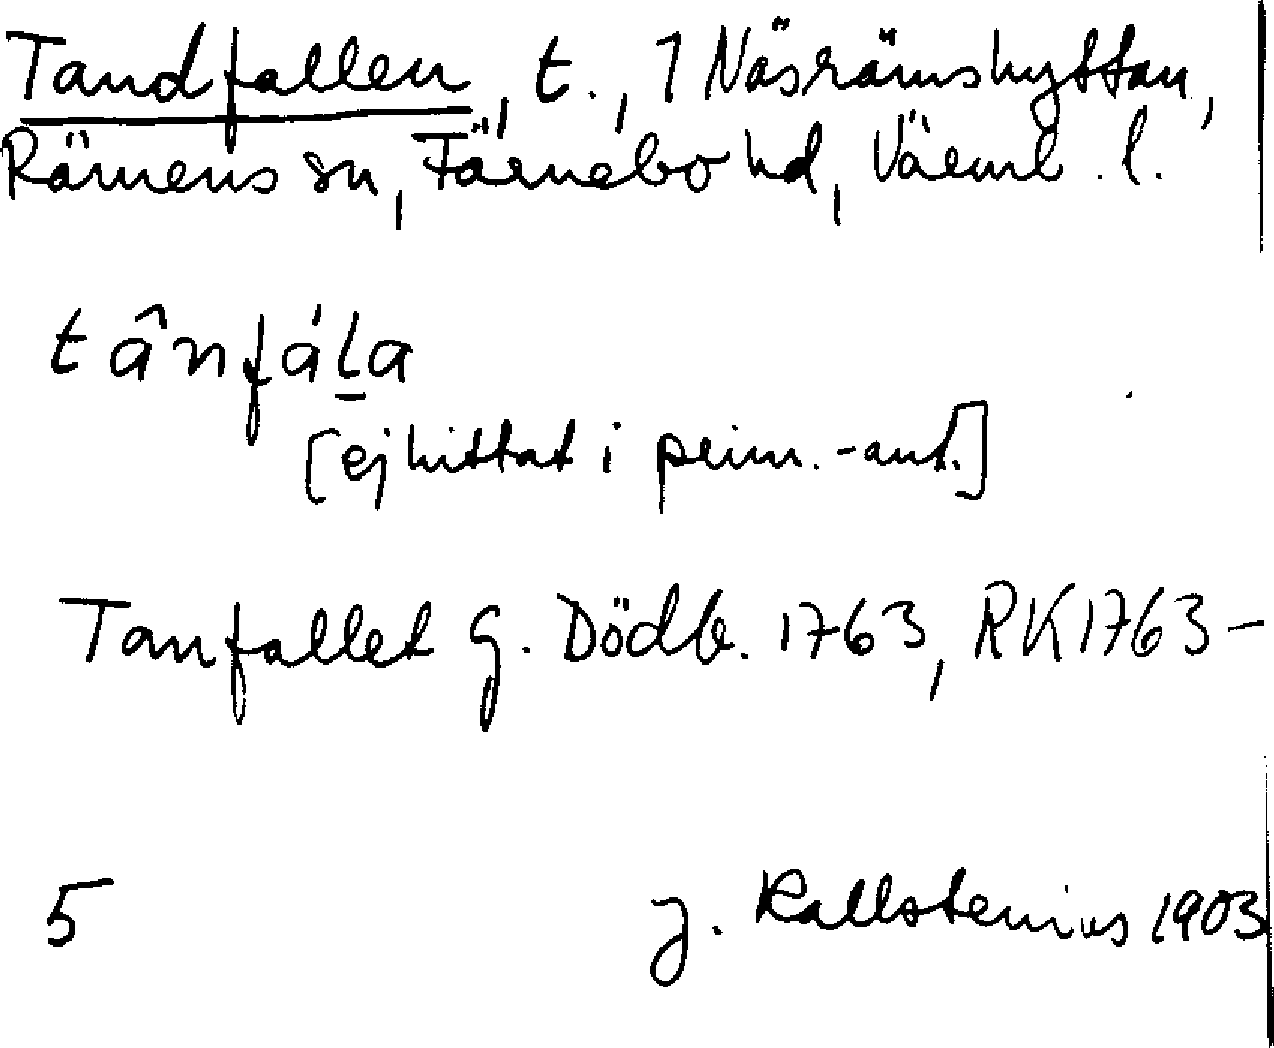 Tandfallen, t., 1 Näsrämshyttan,
Rämens sn, Färnebo hd, Värml. l.
tânfáḻa
[ej hittat i prim.-ant.]
Tanfallet G. Dödb. 1763, RK 1763-
5 G. Kallstenius 1903